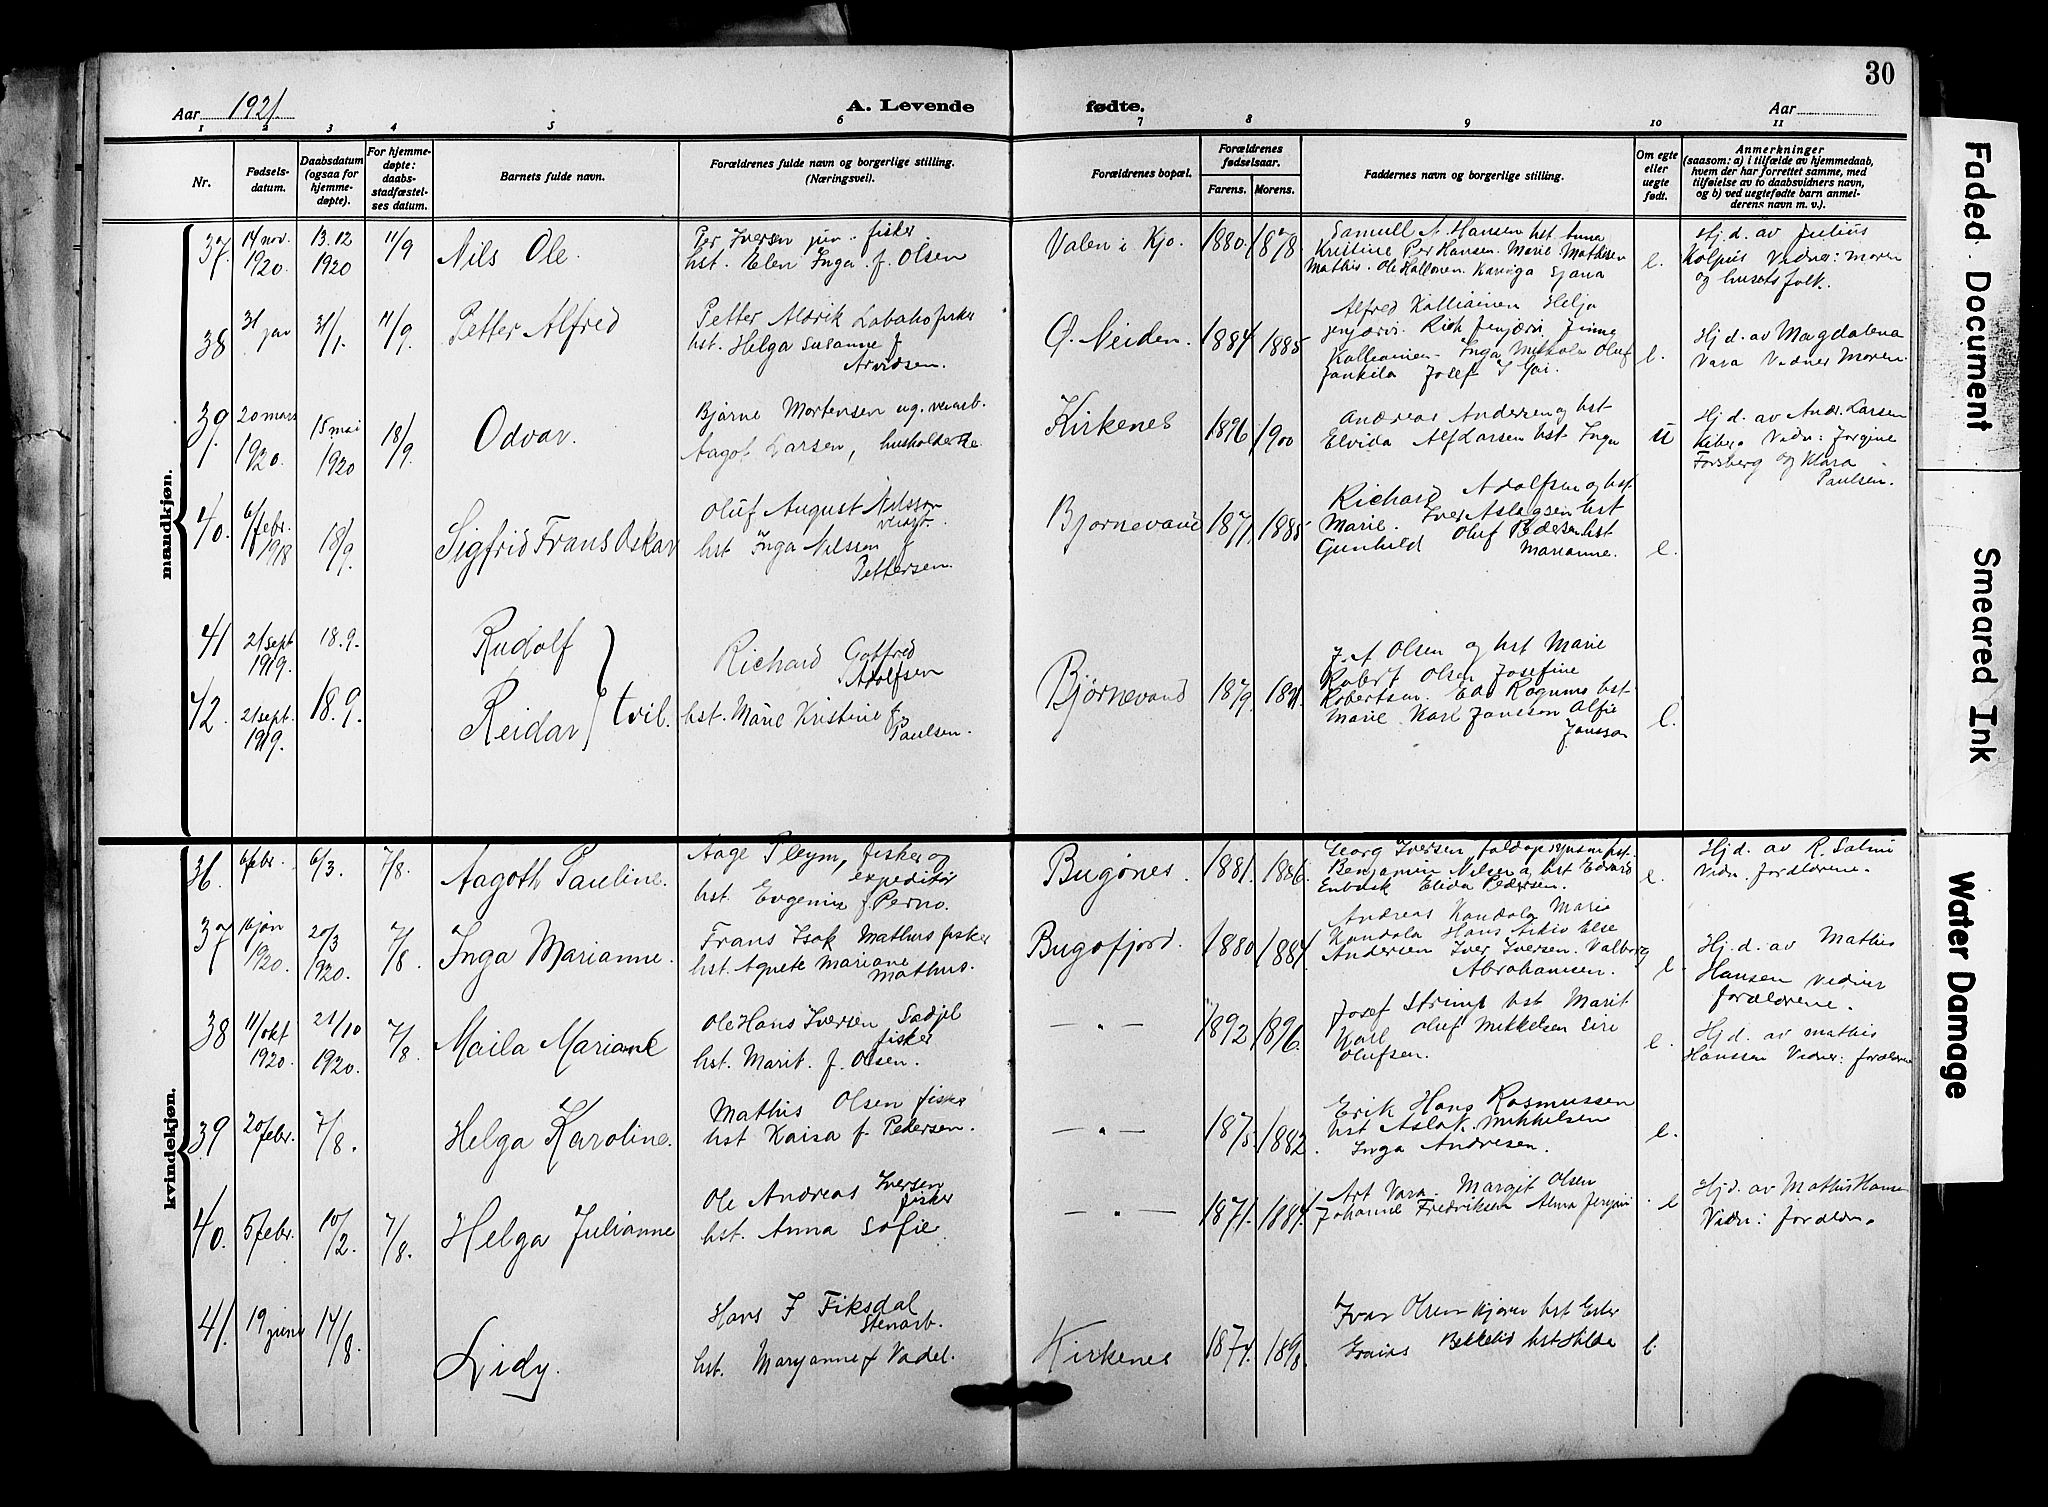 30
Aar 1921.
A. Levende fødte.
Aar
1 2 3 4 5 6 7 8 9 10 11
Nr.
Fødsels-
datum.
Daabsdatum
(ogsaa for
hjemme-
døpte).
For hjemme-
døpte:
daabs-
stadfæstel-
ses datum.
Barnets fulde navn.
Forældrenes fulde navn og borgerlige stilling.
(Næringsvei).
Forældrenes bopæl.
Forældrenes
fødselsaar.
Farens. Morens.
Faddernes navn og borgerlige stilling.
Om egte
eller
uegte
født.
Anmerkninger
(saasom: a) i tilfælde av hjemmedaab,
hvem der har forrettet samme, med
tilføielse av to daabsvidners navn,
og b) ved uegtefødte barn anmel-
derens navn m. v.).
mandkjøn.
37. 14 nov. 1920. 13.12 1920 11/9
Nils Ole.
Per Iversen jun. fisker
hst. Elen Inga f. Olsen
Valen i Kjø. 1880. 1878.
Samuell N. Hansen hst Anna
Kristine Per Hansen. Marie Mathisen
Mathis. Ole Halloren.
e.
Hj. d. av Julius
Kolpus Vidner: moren
og husets folk.
38 31 jan 31/1. 11/9.
Petter Alfred
Petter Aldrik Labahå fisker
hst. Helga Susanne f
Arvidsen.
O. Neiden. 1884 1885
Alfred Kalliainen Helja
Kalliainen Inga Mikkola Oluf
Jankila Josef
e.
Hj d. av Magdalena
Vara Vidner Moren.
39. 20 mars 1920. 15 mai 1920 18/9.
Odvar.
Bjarne Mortensen ug.
Aagot Larsen, husholderske
Kirkenes 1896 1900
Andreas Andersen og hst
Elvida Alf Larsen hst Inga
u
Hj. d. av Andr. Larsen
Kiberg Vidn: Jorgine
Forsberg og Klara
Paulsen.
40. 6/febr. 1918 18/9.
Sigfrid Frans Oskar
Oluf August Nilsson
hst Inga Nilssen f
Pettersen.
Bjørnevand 1871. 1885
Richard Adolfsen og hst.
Marie. Iver Aslagsen hst
Gunhild Oluf Pedersen hst
Marianne.
e.
41 21 sept 1919. 18.9.
Rudolf
42. 21 sept. 1919. 18.9.
Reidar
tvil.
Richard Gotfred
Adolfsen
hst. Marie Kristine f
Paulsen.
Bjørnevand 1879.
J. A Olsen og hst Marie
Robert Olsen Josefine
Robertsen. Edv Rognmo hst
Marie. Karl Jansson Alfie
Jansson
e.
kvindekjøn.
36. 6/febr. 6/3. 7/8.
Aagoth Pauline.
Aage Pleym, fisker og
expeditør
hst. Evgenia f. Perno.
Bugønes. 1881. 1886.
Georg Iversen
Benjamin Nilsen og hst Edvard
Enbusk Elida Pedersen.
e.
Hj d. av R. Salmi
Vidn. forældrene.
37. 16 jan 1920. 20/3 1920. 7/8.
Inga Marianne.
Frans Isak Mathus fisker
hst. Agnete Mariane
Mathus.
Bugøfjord. 1880 1884.
Andreas Kandola Marie
Kandola Hans Else
Andersen Iver Iversen. Valborg
Abrahamsen.
e.
Hj. d. av Mathis
Hansen Vidner
forældrene.
38 11/okt 1920. 21/10 1920. 7/8.
Maila Mariane
Ole Hans Iversen Sadjel
fisker
hst. Marit. f. Olsen.
— " — 1892 1896.
Josef Strimp hst Marit
Karl Oluf Mikkelsen Siri
Olufsen.
e.
Hj d. av Mathis
Hanssen Vidner: forældrene
39 20/febr. 7/8.
Helga Karoline.
Mathis Olsen fisker
hst Kaisa f. Pedersen.
— " — 1875. 1882.
Erik Hans Rasmussen
hst Aslak. Mikkelsen
Inga Andresen.
e.
40. 5/febr. 10/2. 7/8.
Helga Julianne
Ole Andreas Iversen
fisker
hst. Anna Sofie.
— " — 1871. 1884.
Art Vara Margit Olsen
Johanne Fredriksen Alma
e
Hj d. av Mathis Hansen
Vidn: forældr.
41. 19 juni 14/8.
Lidy.
Hans J Fiksdal
Stenarb.
hst. Maryanne f Vadel.
Kirkenes 1874. 1898.
Ivar Olsen Kjøren hst Ester
Bekkelid hst Hilda
e.
Faded Document
Smeared Ink
Water Damage